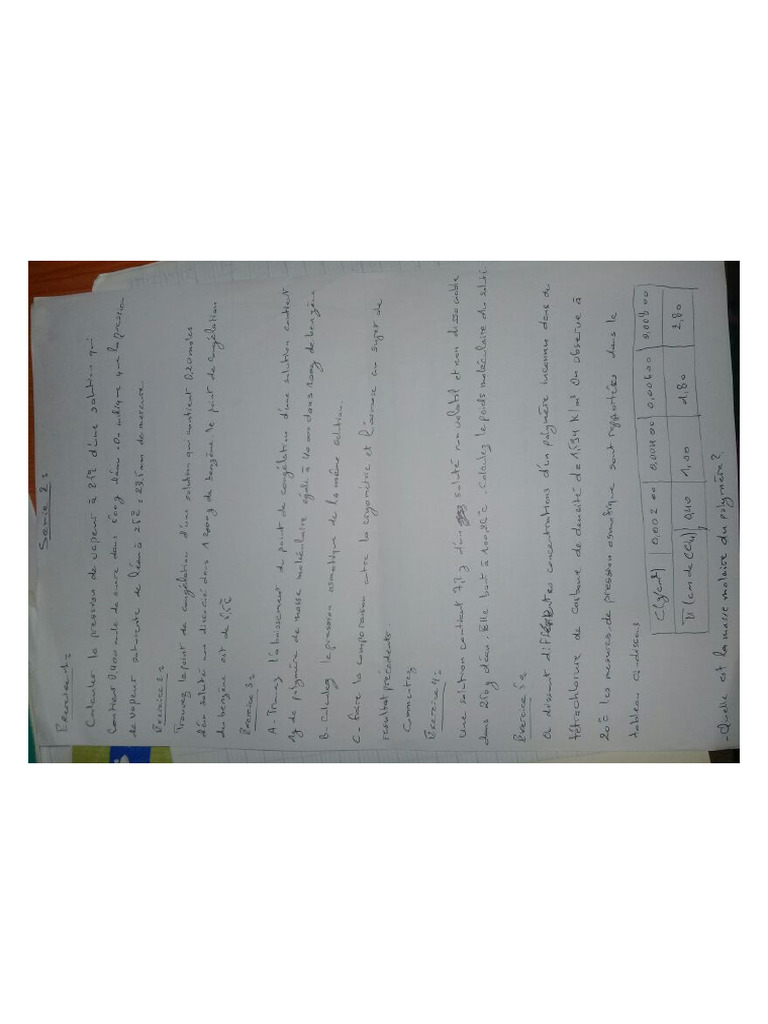 Serie 2 :
Exercice 1 :
Calculer la pression de vapeur à 25°C d'une solution qui
contient 0,400 mole de sucre dans 500g d'eau. On indique que la pression
de vapeur saturante de l'eau à 25°C : 23,5 mm de mercure.
Exercice 2 :
Trouvez le point de congélation d'une solution qui contient 0,20 moles
d'un soluté non dissocié dans 1200g de benzène le point de congélation
du benzène est de 5,5°C
Exercice 3 :
A - Trouvez l'abaissement du point de congélation d'une solution contient
1g de polymère de masse moléculaire égale à dans 100g de benzène
B - Calculez la pression osmotique de la même solution.
C - Faire la comparaison entre la cryométrie et l'osmose au sujet de
resultat precedents.
Commentez
Exercice 4 :
Une solution contient 7,2g d'un soluté non volatil et non dissociable
dans 250g d'eau. Elle bout à 100,25°C. Calculez le poids moléculaire du soluté
Exercice 5 :
dissout différentes concentrations d'un polymère inconnue dans de
tétrachlorure de carbone de densité de 1,594 k/m³ On observe à
20°C les mesures de pression osmotique sont rapportées dans le
tableau ci-dessous
C(g/cm³) 0,00200 0,00400 0,00600 0,00800
π (cm de CCl4) 0,40 1,00 1,80 2,80
- Quelle est la masse molaire du polymère?